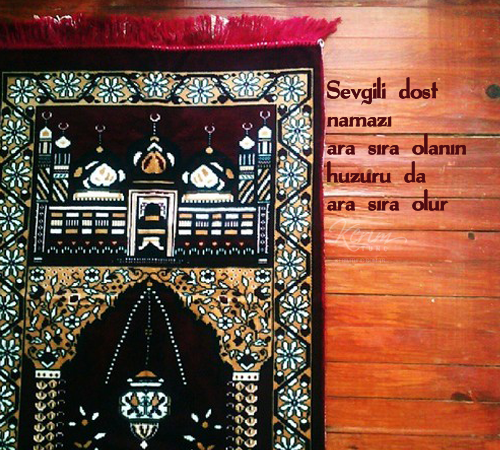 Sevgili dost
namazı
ara sıra olanın
huzuru da
ara sıra olur